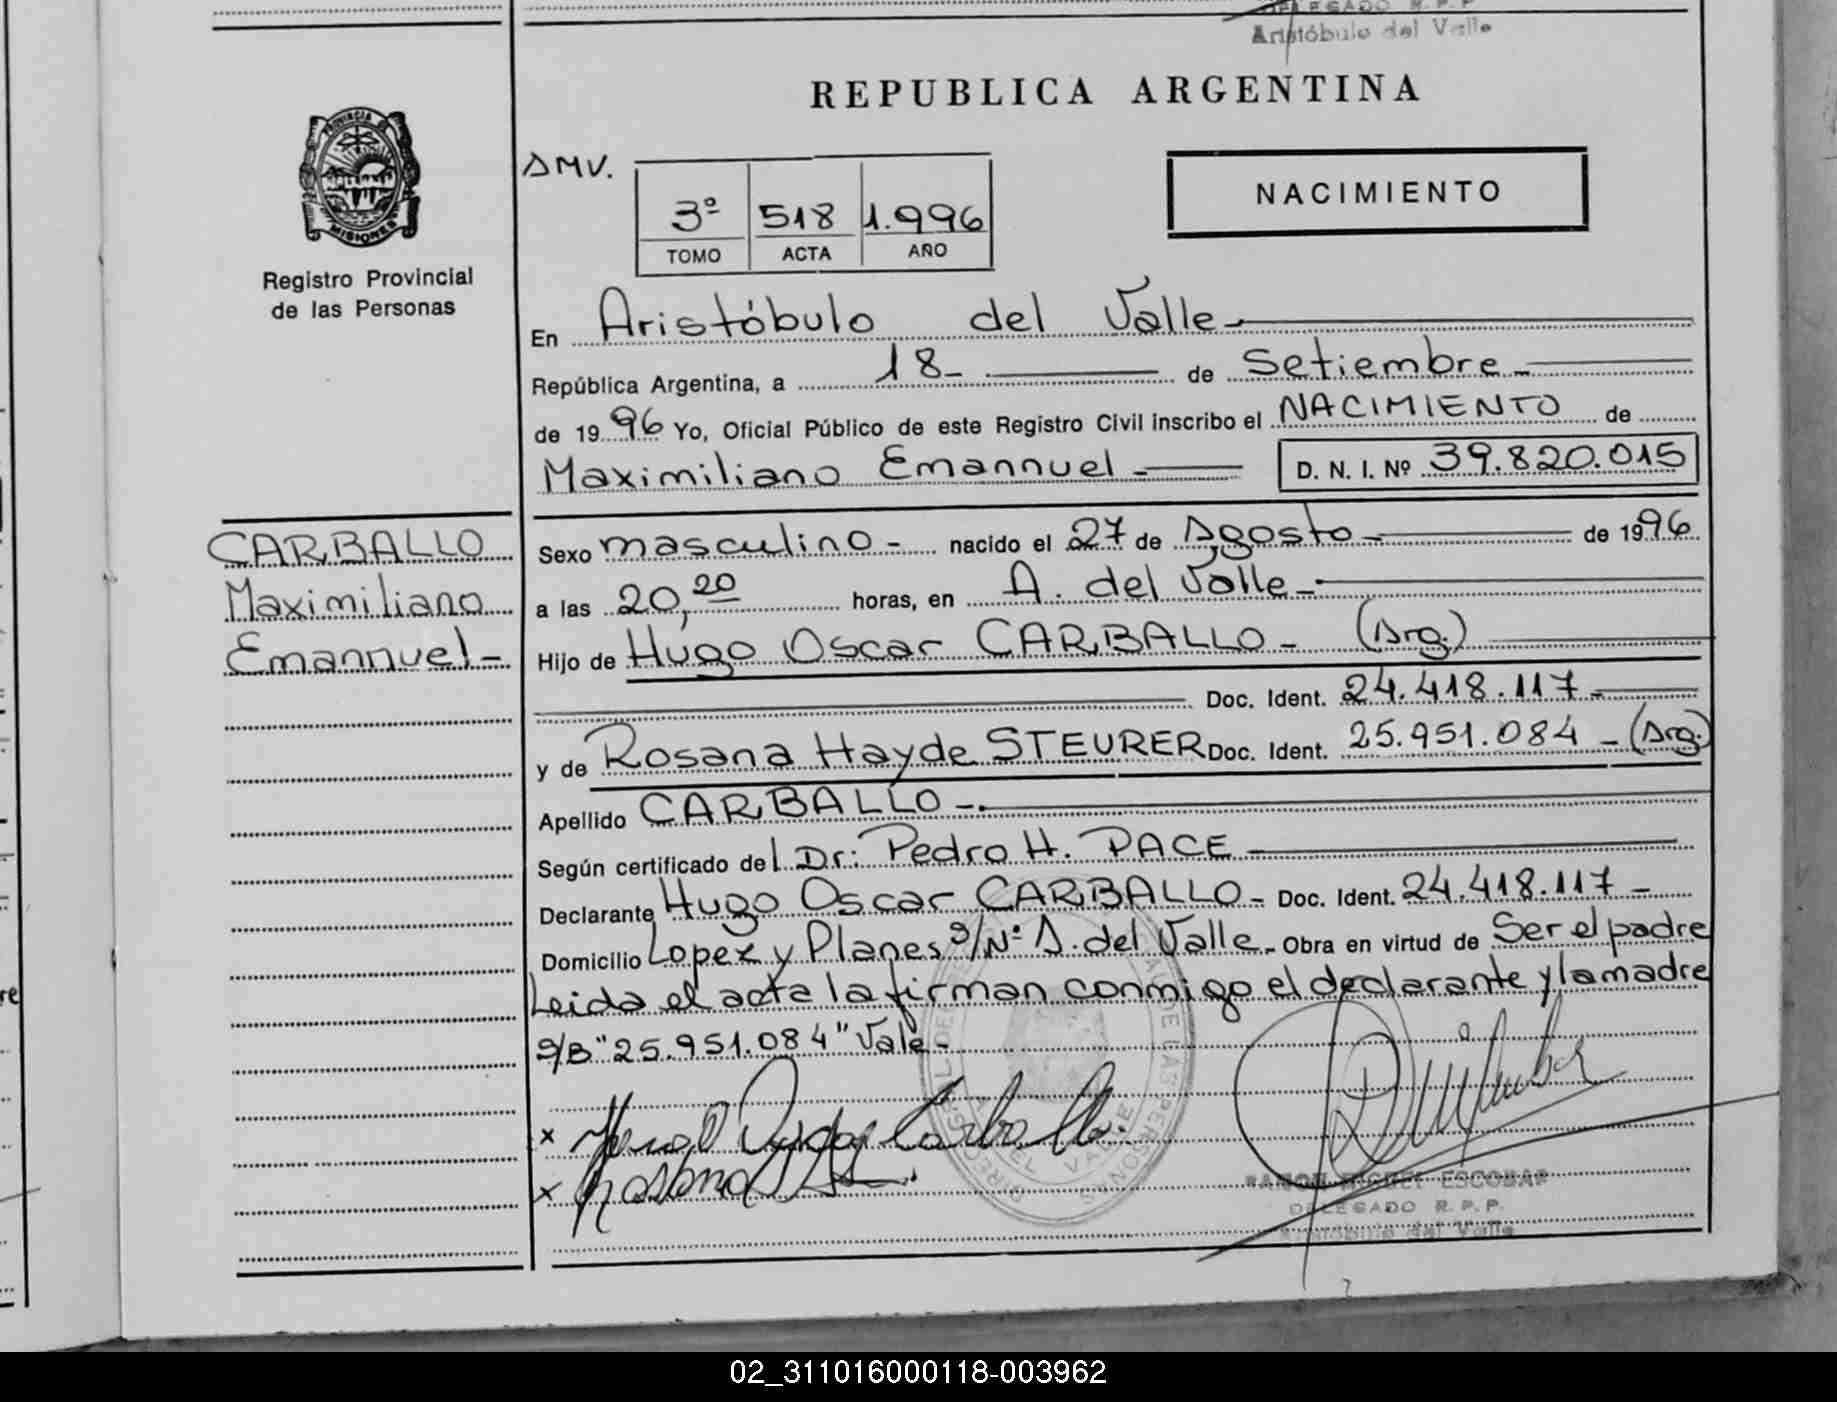 DELEGADO R. P. P.
Aristóbulo del Valle
REPUBLICA ARGENTINA
PROVINCIA DE
MISIONES
Registro Provincial
de las Personas
AMV.
3º 518 1.996
TOMO ACTA AÑO
NACIMIENTO
En Aristóbulo del Valle
República Argentina, a 18 de Setiembre
de 1996 Yo, Oficial Público de este Registro Civil inscribo el NACIMIENTO de
Maximiliano Emannuel D. N. I. Nº 39.820.015
CARBALLO
Maximiliano
Emannuel
Sexo masculino nacido el 27 de Agosto de 1996
a las 20,20 horas, en A. del Valle
Hijo de Hugo Oscar CARBALLO (Arg.)
Doc. Ident. 24.418.117
y de Rosana Hayde STEURER Doc. Ident. 25.951.084 (Arg.)
Apellido CARBALLO
Según certificado del Dr: Pedro H. PACE
Declarante Hugo Oscar CARBALLO Doc. Ident. 24.418.117
Domicilio Lopez y Planes s/Nº A. del Valle Obra en virtud de Ser el padre
Leida el acta la firman conmigo el declarante y la madre
S/B "25.951.084" Vale
DE LAS PERSONAS
VALLE
RAMON MIGUEL ESCOBAR
DELEGADO R. P. P.
Aristóbulo del Valle
02_311016000118-003962